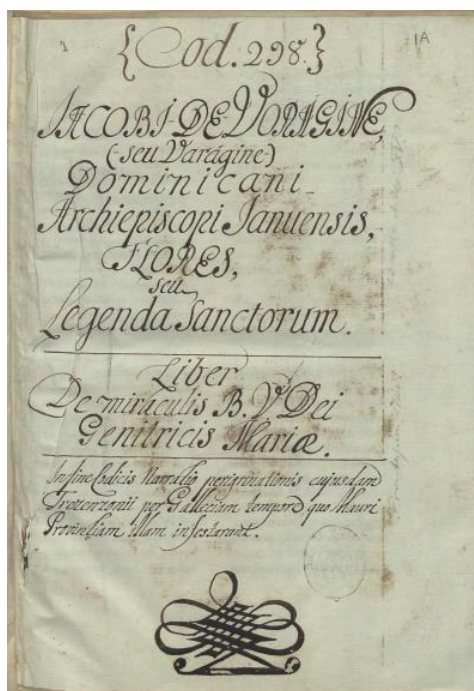 1
1A
{Cod. 298.}
IACOBI-DE-VORAGINE,
(-seu Varagine)
Dominicani-
Archiepiscopi Ianuensis,
FLORES,
seu
Legenda Sanctorum.
Liber
De miraculis B. V. Dei
Genitricis Mariæ.
In fine Codicis Narratio peregrinationis cujusdam
Trotenzonii per Galleciam tempore quo Mauri
Provinciam illam infestarant.